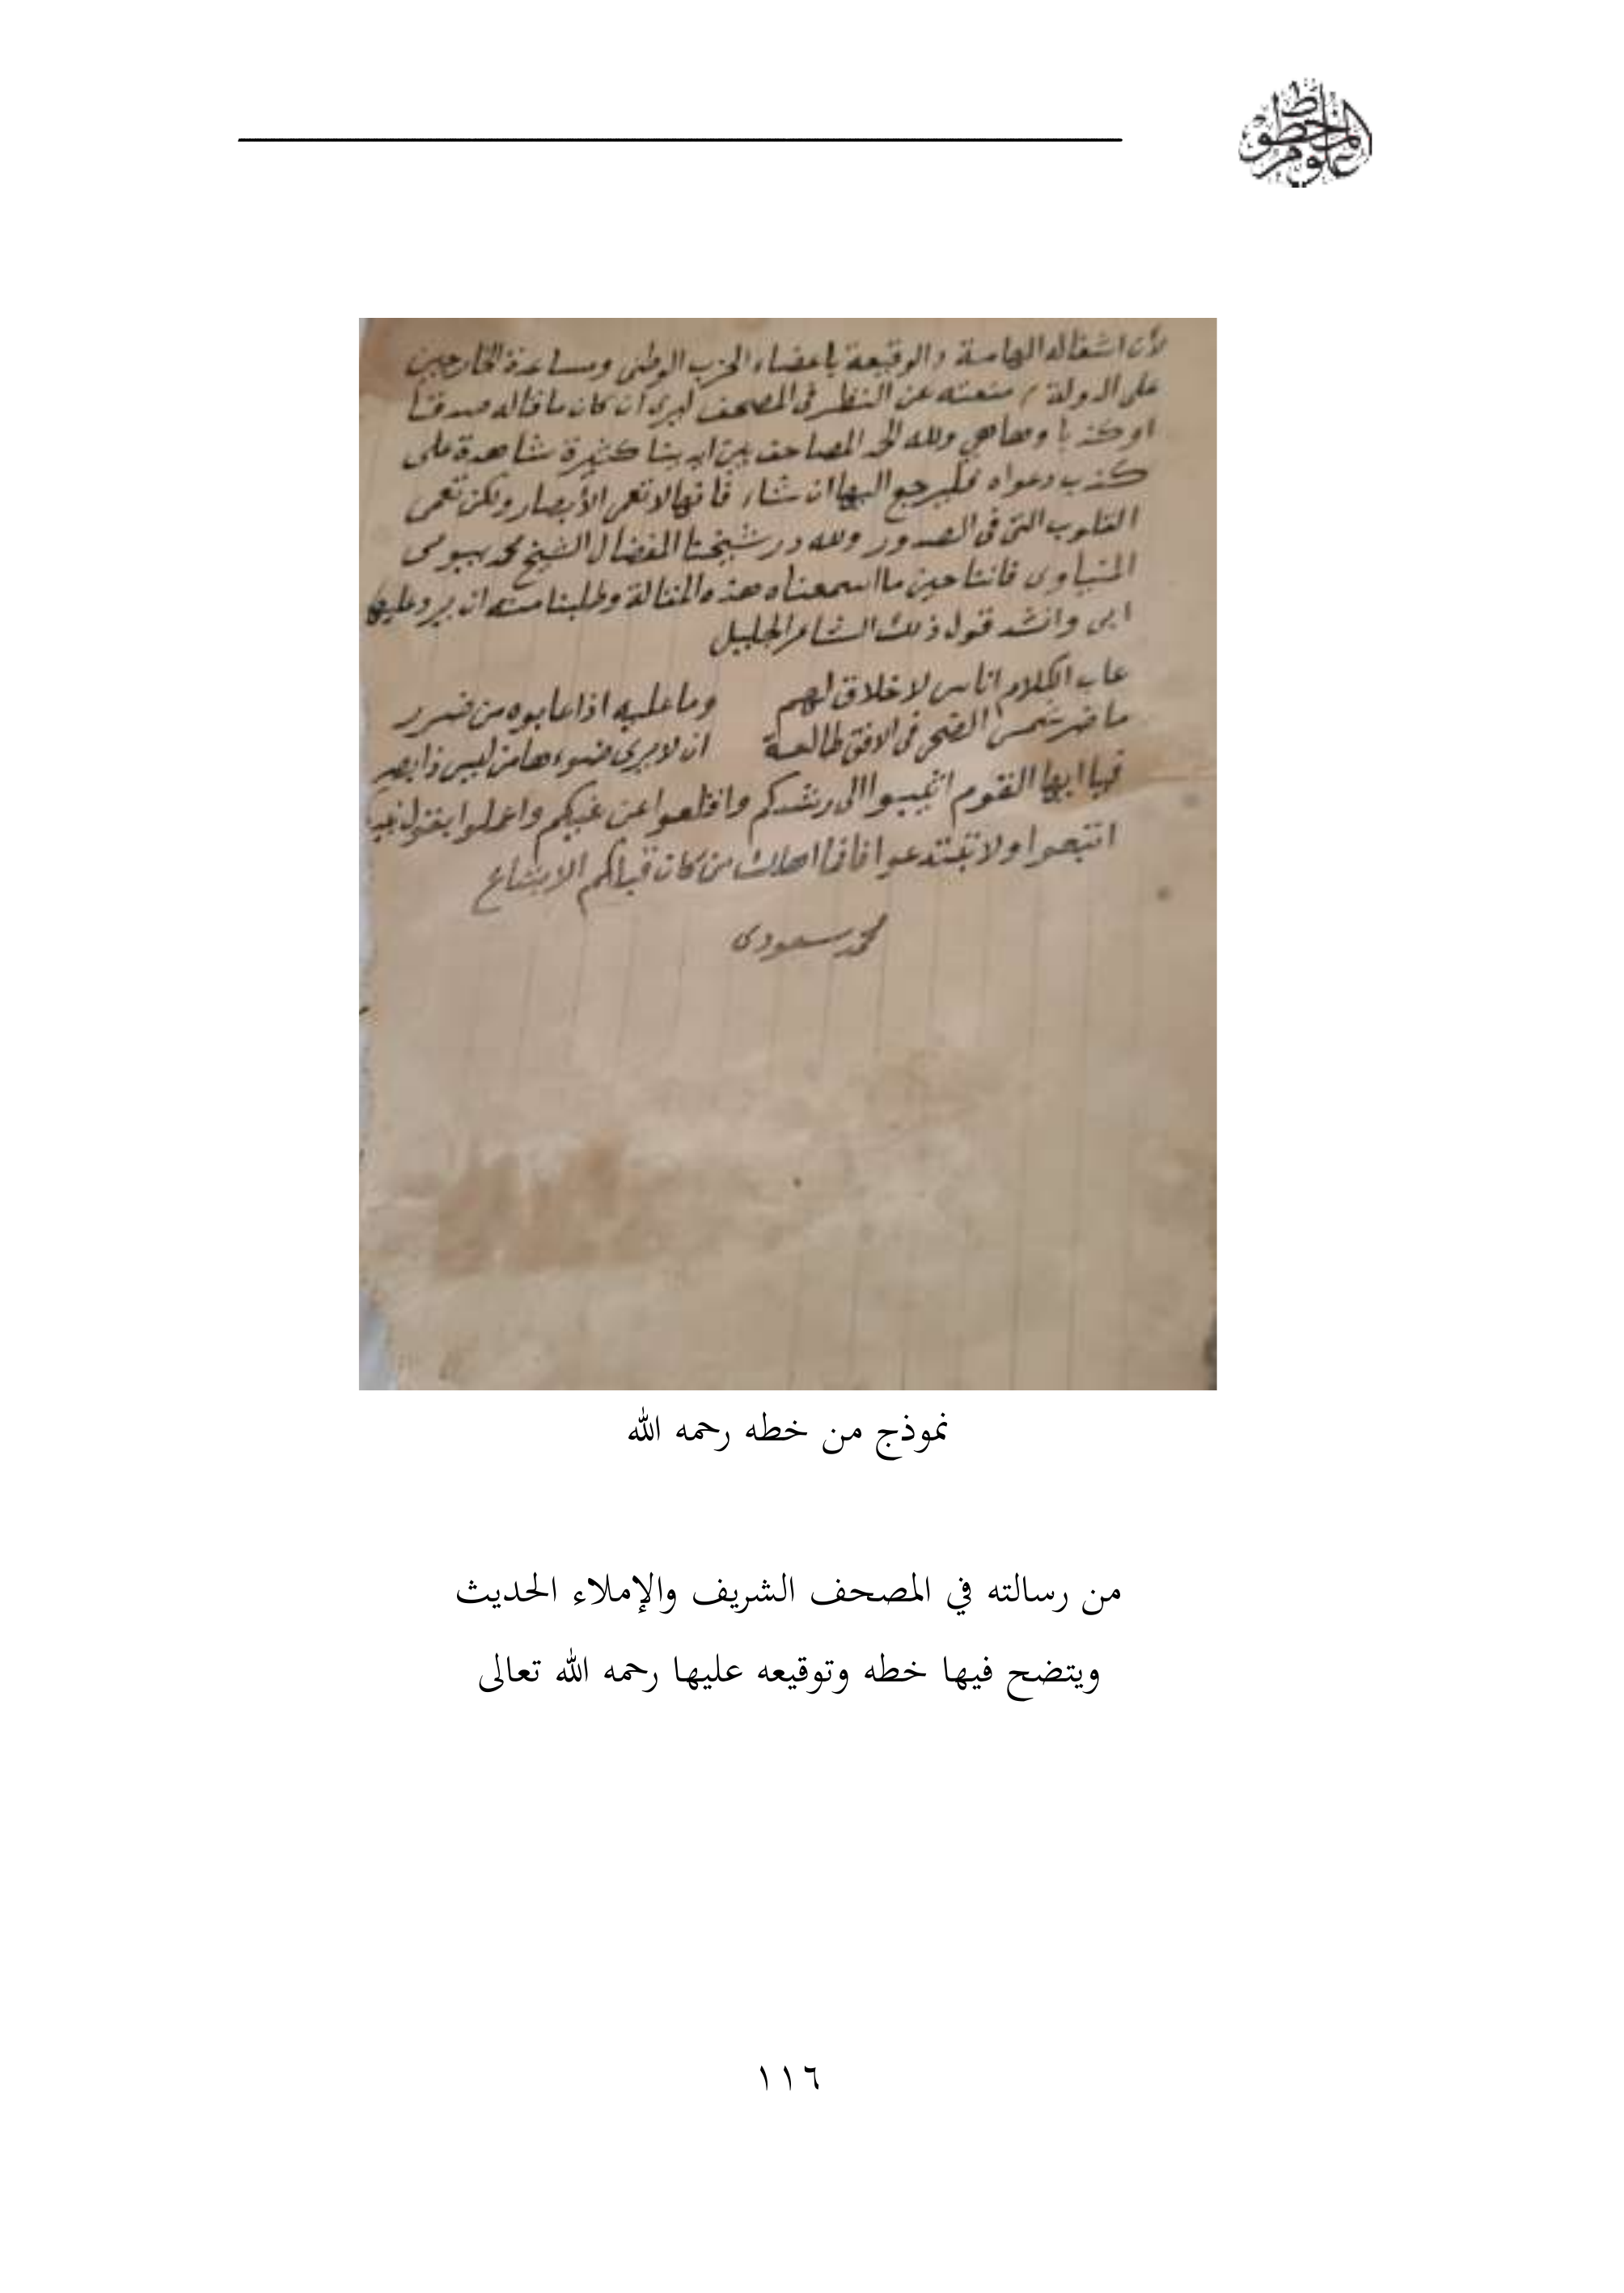 علوم المخطوط
لأن اشغاله الهامة والوقيعة باعضاء الحزب الوطنى ومساعدة الخارجين
على الدولة منعته عن النظر فى المصحف ليرى ان كان ما قاله صدقا
او كذبا وها هى ولله الحمد المصاحف بين ايدينا كثيرة شاهدة على
كذب دعواه فليرجع اليها ان شاء فانها لا تعمى الأبصار ولكن تعمى
القلوب التى فى الصدور ولله در شيخنا المفضال الشيخ محمد بيومى
المنياوى فاننا حين ما اسمعناه هذه المقالة وطلبنا منه ان يرد عليها
ابى وانشد قول ذلك الشاعر الجليل
عاب الكلام اناس لا خلاق لهم وما عليه اذا عابوه من ضرر
ما ضر شمس الضحى فى الافق طالعة ان لا يرى ضوءها من ليس ذا بصر
فيا ايها القوم اثيبوا الى رشدكم واقلعوا عن غيكم واعملوا بقول
اتبعوا ولا تبتدعوا فانما اهلك من كان قبلكم الابتداع
محمد سعودى
نموذج من خطه رحمه الله
من رسالته في المصحف الشريف والإملاء الحديث
ويتضح فيها خطه وتوقيعه عليها رحمه الله تعالى
١١٦